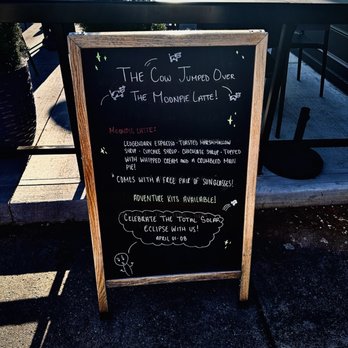 The Cow Jumped Over
The Moonpie Latte!
Moonpie Latte:
Leggendary Espresso · Toasted Marshmallow
Syrup · Cupcake Syrup · Chocolate Syrup · Topped
with whipped cream and a crumbled Moon
Pie!
Comes with a free pair of sunglasses!
Adventure Kits Available!
Celebrate The Total Solar
Eclipse with us!
April 01-08